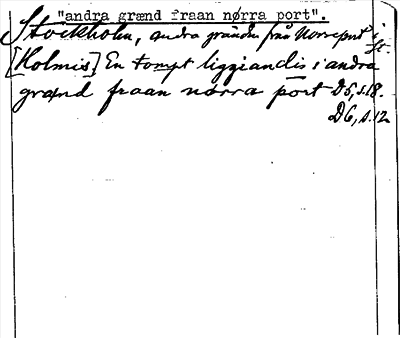 "andra grænd fraan nørra port".
Stockholm, andra gränden från Norreport i
St.
[Holmis]. En tompt liggiandis i andra
grænd fraan nørra port D5, s.18.
D6, s.12